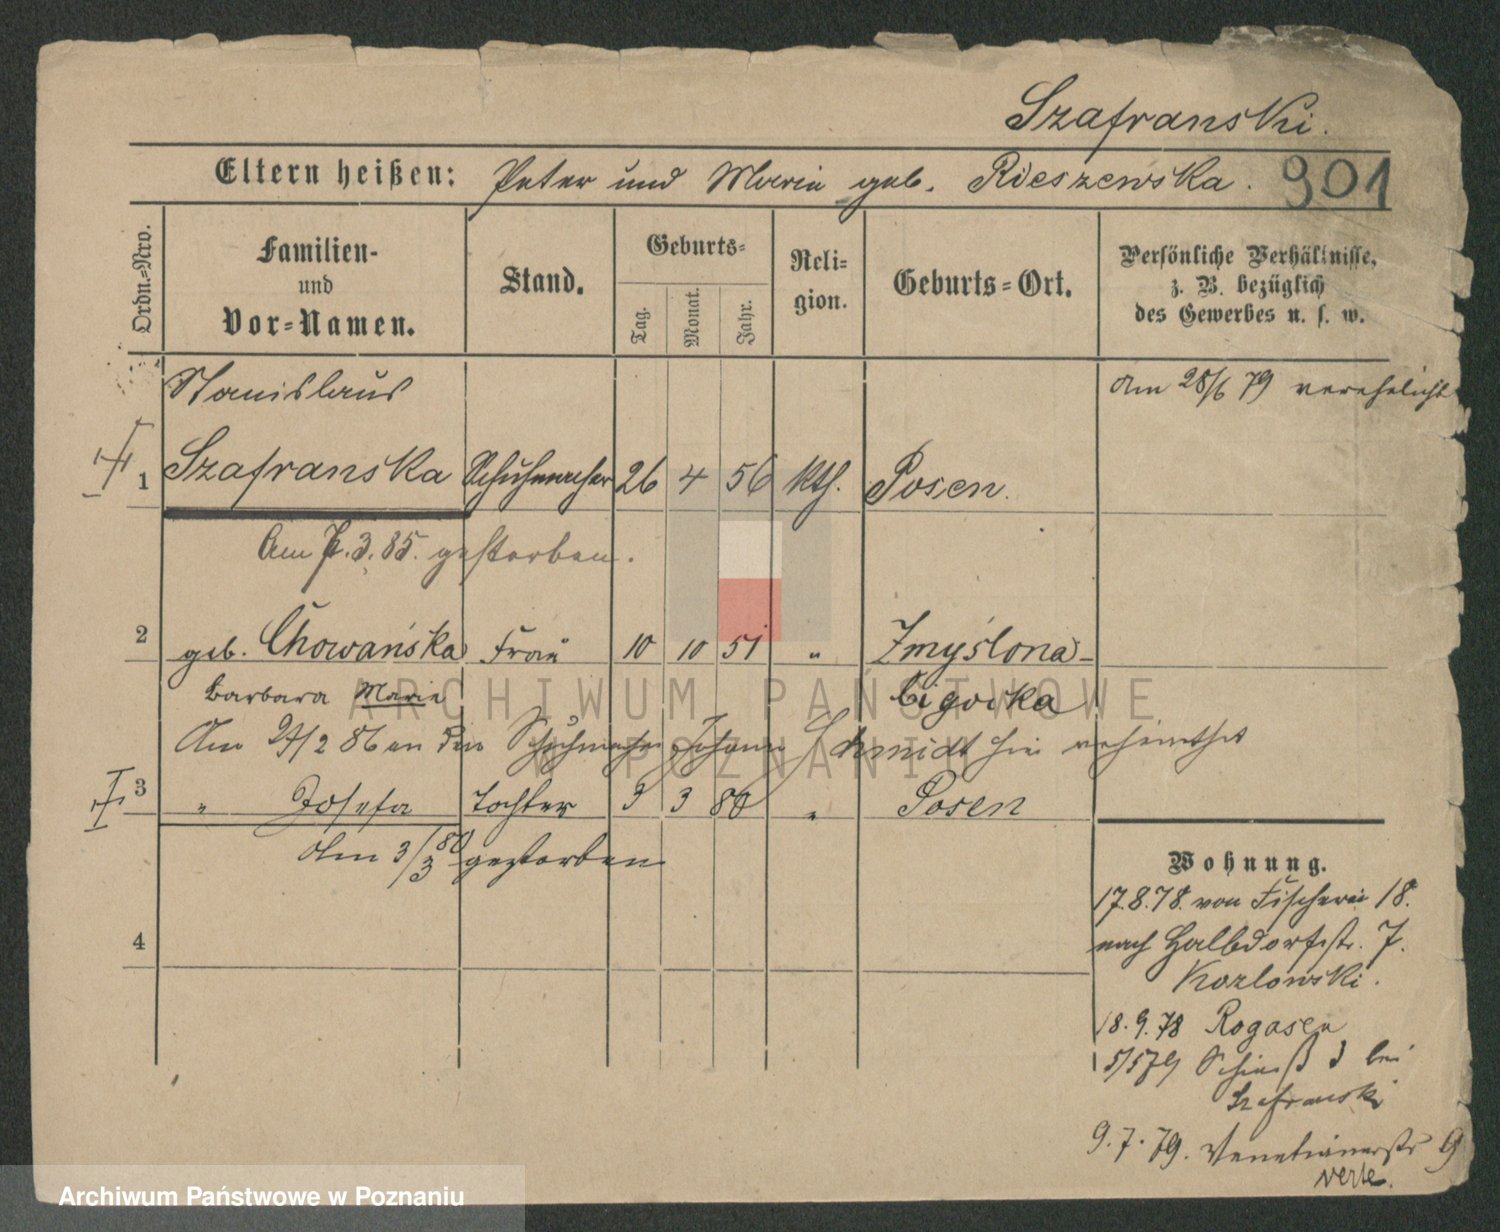 Szafranski.
Eltern heißen: Peter und Marie geb. Rieszewska. 901
Ordn.=Nro.
Familien-
und
Vor=Namen.
Stand.
Geburts=
Tag.
Monat.
Jahr.
Reli=
gion.
Geburts=Ort.
Persönliche Verhältnisse,
z. B. bezüglich
des Gewerbes u. s. w.
Stanislaus
am 28/6 79 verehelicht
1 Szafranska Schuhmacher 26 4 56 kth. Posen.
Am 7.3.85. gestorben.
2 geb. Chowańska Frau 10 10 51 " Zmyślona-
Barbara Marie Ligocka
Am 27/2 86 an den Schuhmacher Johann Schmidt hier verheirathet
3 " Josefa Tochter 3 3 80 " Posen
am 3/3 80 gestorben
4
Wohnung.
17.8.78. von Fischerei 18.
nach Halbdorfstr. 7.
Kozlowski.
18.9.78 Rogasen
5/5 79 Schieß 3 bei
Szafranski
9.7.79. Venetianerstr 9
verte.
ARCHIWUM PAŃSTWOWE
W POZNANIU
Archiwum Państwowe w Poznaniu